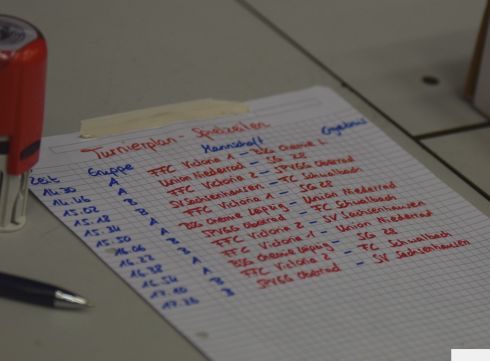 Turnierplan - Spielzeiten
Zeit Gruppe Mannschaft Ergebnis
14.30 A FFC Victoria 1 - BSG Chemie L.
14.46 A Union Niederrad - SG 28
15.02 B FFC Victoria 2 - SPVGG Oberrad
15.18 B SV Sachsenhausen - FC Schwalbach
15.34 A FFC Victoria 1 - SG 28
15.50 A BSG Chemie Leipzig - Union Niederrad
16.06 B SPVGG Oberrad - FC Schwalbach
16.22 B FFC Victoria 2 - SV Sachsenhausen
16.38 A FFC Victoria 1 - Union Niederrad
16.54 A BSG Chemie Leipzig - SG 28
17.10 B FFC Victoria 2 - FC Schwalbach
17.26 B SPVGG Oberrad - SV Sachsenhausen